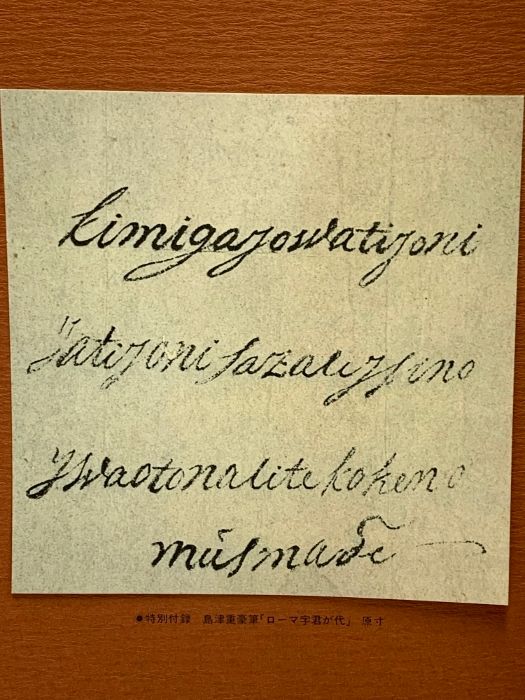 kimigayowatiyoni
ÿatiyoni sazaleysino
ywaotonalite kokeno
músmade
●特別付録　島津重豪筆「ローマ字君が代」　原寸